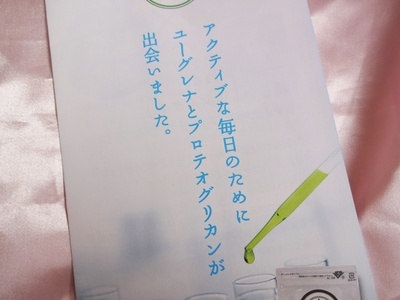 アクティブな毎日のために
ユーグレナとプロテオグリカンが
出会いました。